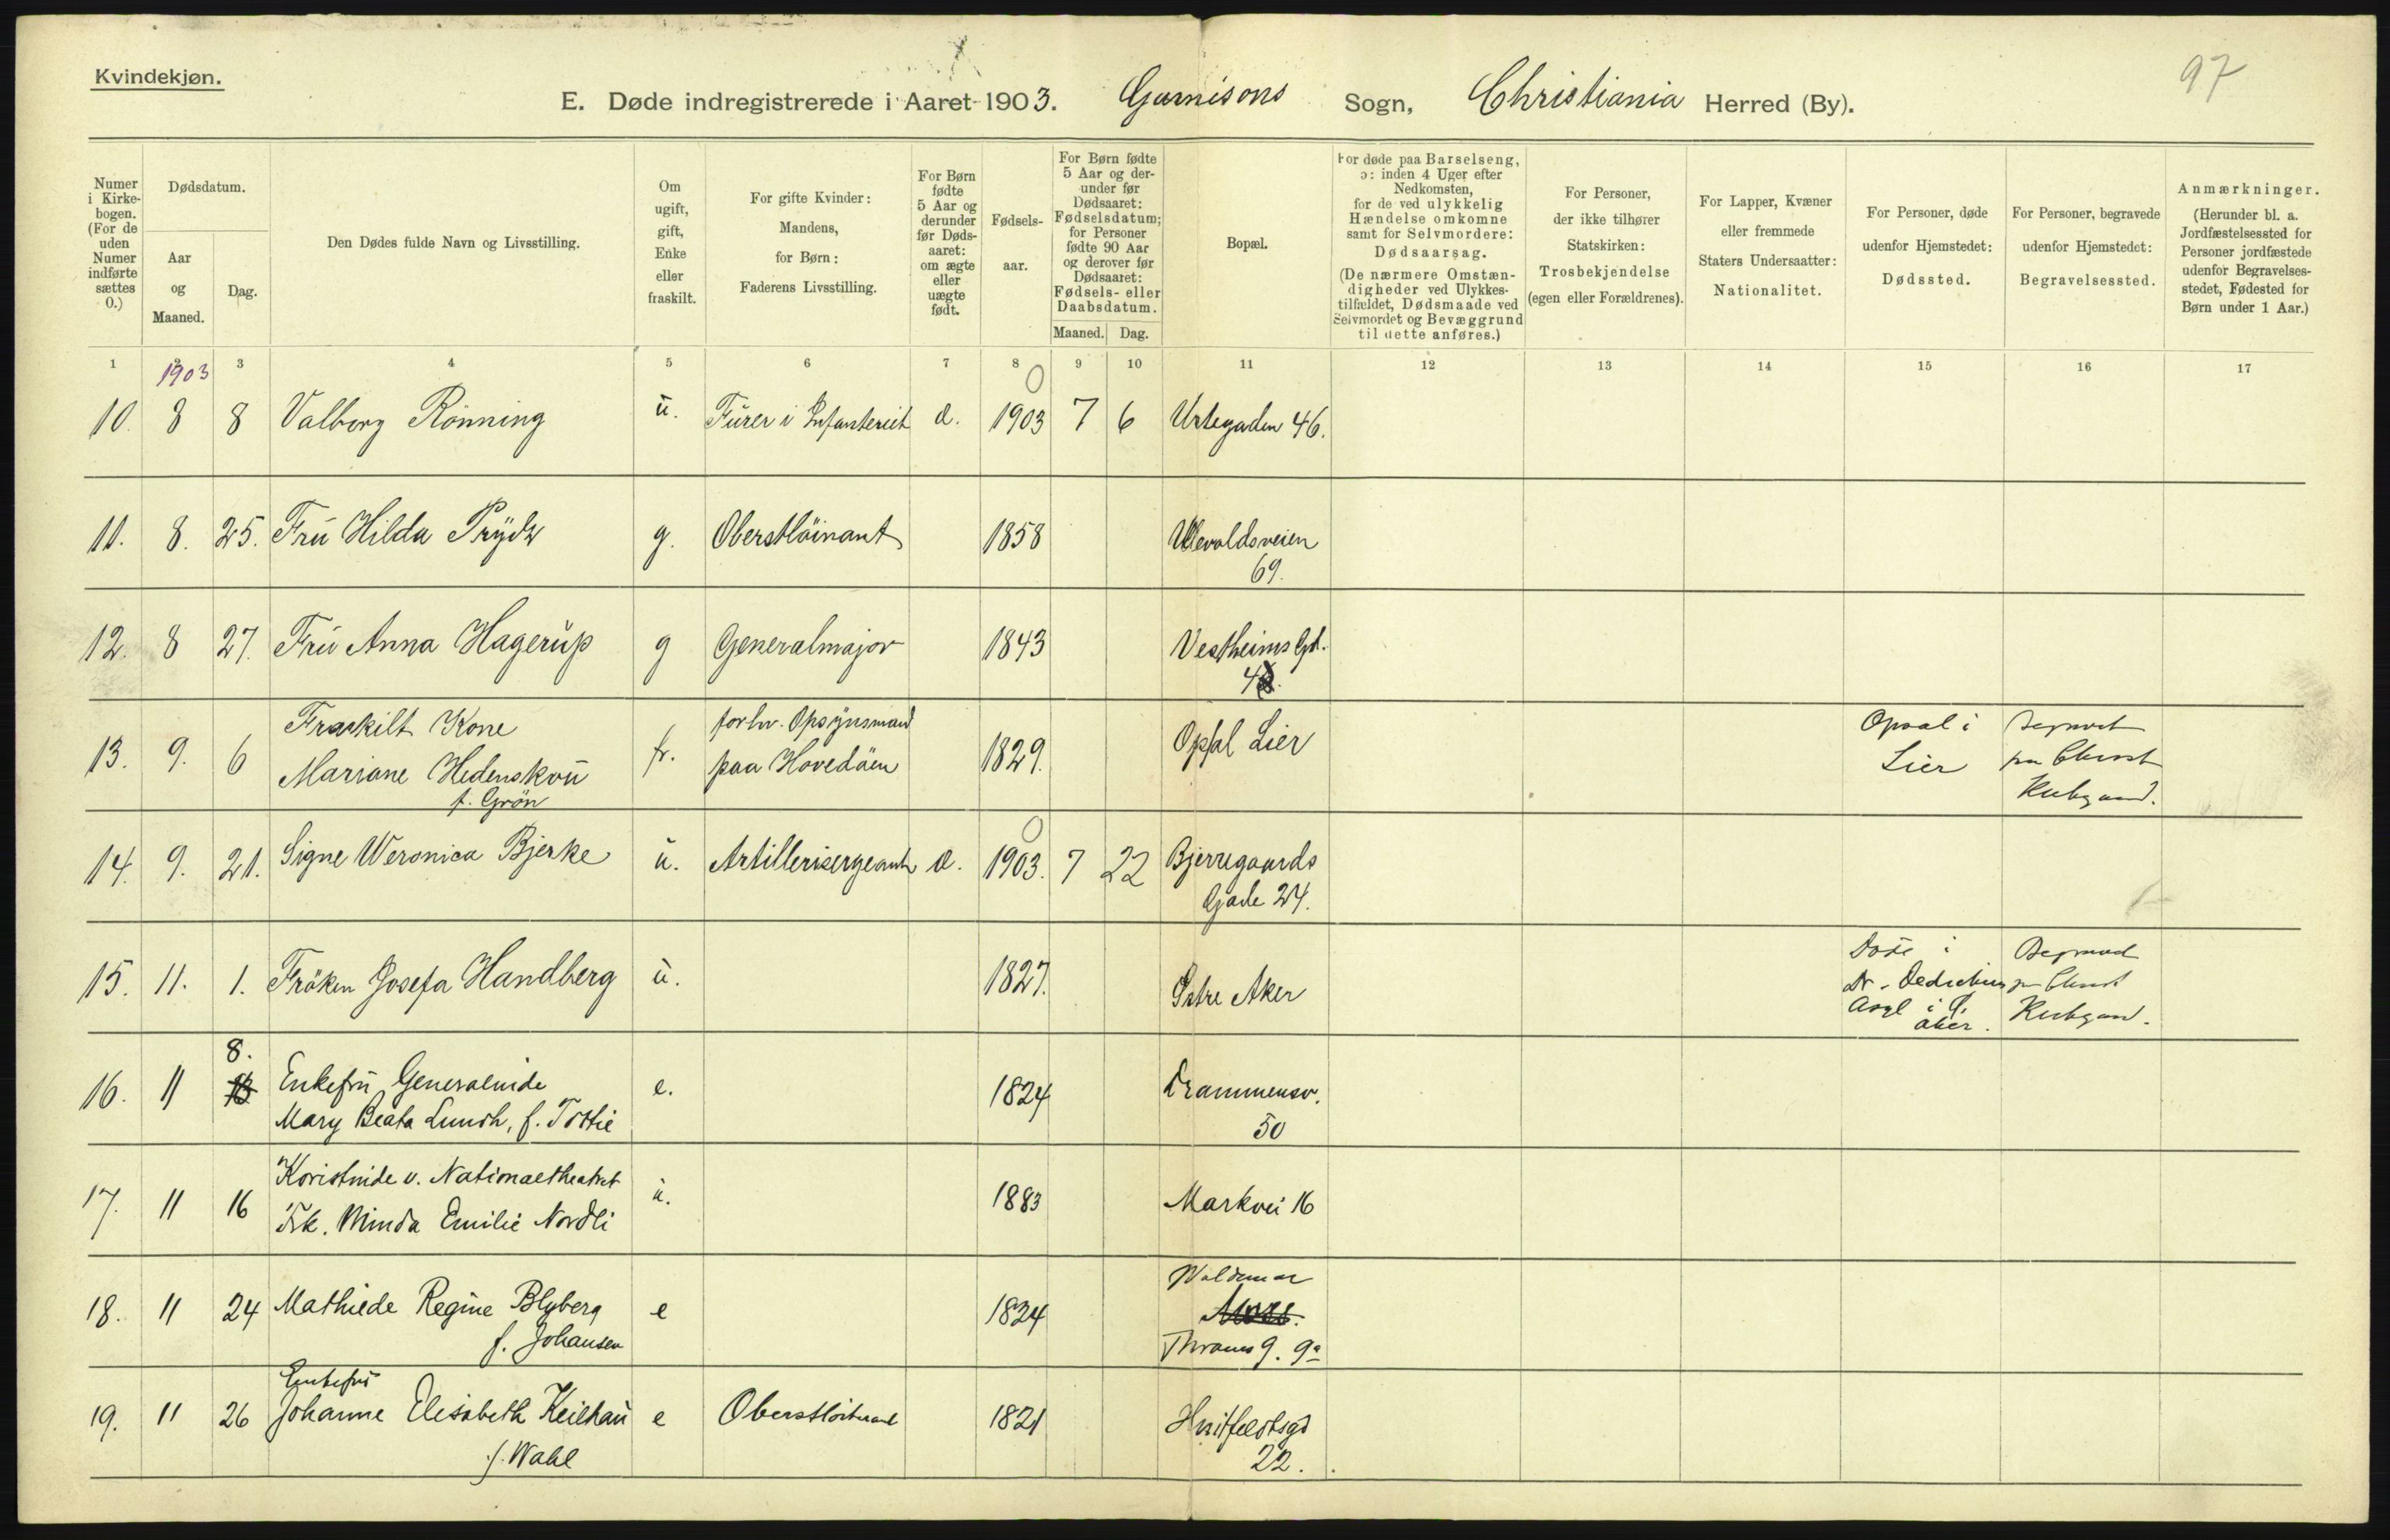 97
Kvindekjøn.
E. Døde indregistrerede i Aaret 1903. Garnisons Sogn, Christiania Herred (By).
Numer i Kirke-bogen. (For de uden Numer indførte sættes 0.)
Dødsdatum.
Aar og Maaned.
Dag.
Den Dødes fulde Navn og Livsstilling.
Om ugift, gift, Enke eller fraskilt.
For gifte Kvinder: Mandens, for Børn: Faderens Livsstilling.
For Børn fødte 5 Aar og derunder før Døds-aaret: om ægte eller uægte født.
Fødsels-aar.
For Børn fødte 5 Aar og der-under før Dødsaaret: Fødselsdatum; for Personer fødte 90 Aar og derover før Dødsaaret: Fødsels- eller Daabsdatum.
Maaned. Dag.
Bopæl.
For døde paa Barselseng, ɔ: inden 4 Uger efter Nedkomsten, for de ved ulykkelig Hændelse omkomne samt for Selvmordere: Dødsaarsag. (De nærmere Omstæn-digheder ved Ulykkes-tilfældet, Dødsmaade ved Selvmordet og Bevæggrund til dette anføres.)
For Personer, der ikke tilhører Statskirken: Trosbekjendelse (egen eller Forældrenes).
For Lapper, Kvæner eller fremmede Staters Undersaatter: Nationalitet.
For Personer, døde udenfor Hjemstedet: Dødssted.
For Personer, begravede udenfor Hjemstedet: Begravelsessted.
Anmærkninger. (Herunder bl. a. Jordfæstelsessted for Personer jordfæstede udenfor Begravelses-stedet, Fødested for Børn under 1 Aar.)
1 2 3 4 5 6 7 8 9 10 11 12 13 14 15 16 17
1903
10. 8 8 Valborg Rönning u. Furer i Infanteriet 1903 7 6 Urtegaden 46.
11. 8. 25. Fru Hilda Prydz g. Oberstlöinant 1858 Ullevoldsveien
69.
12. 8 27. Fru Anna Hagerup g Generalmajor 1843 Vestheims Gd.
13. 9. 6 Fraskilt Kone fr. forhv. Opsynsmand 1829. Opsal Lier Opsal i
Mariane Hedenskou paa Hovedöen Lier
f. Grön
14. 9. 21. Signe Weronica Bjerke u. Artillerisergeant 1903. 7 22 Bjerregaards
Gade 24.
15. 11. 1. Fröken Josefa Handberg u. 1827. Östre Aker Döde i
Dr. Dedichens
Asyl i Ö.
Aker.
8.
16. 11 Enkefru Generalinde e. 1824 Drammensv.
Mary Beata Lundh, f. Tostie 50
17. 11 16 Koristinde v. Nationaltheatret u. 1883 Markvei 16
Frk. Minda Emilie Nordli
18. 11 24 Mathilde Regine Blyberg e 1824 Waldemar
f. Johansen Thranes g. 9a
19. 11 26 Enkefru
Johanne Elisabeth Keilhau e Oberstlöitnant 1821 Hvitfeldtsgd
f. Wahl 22.